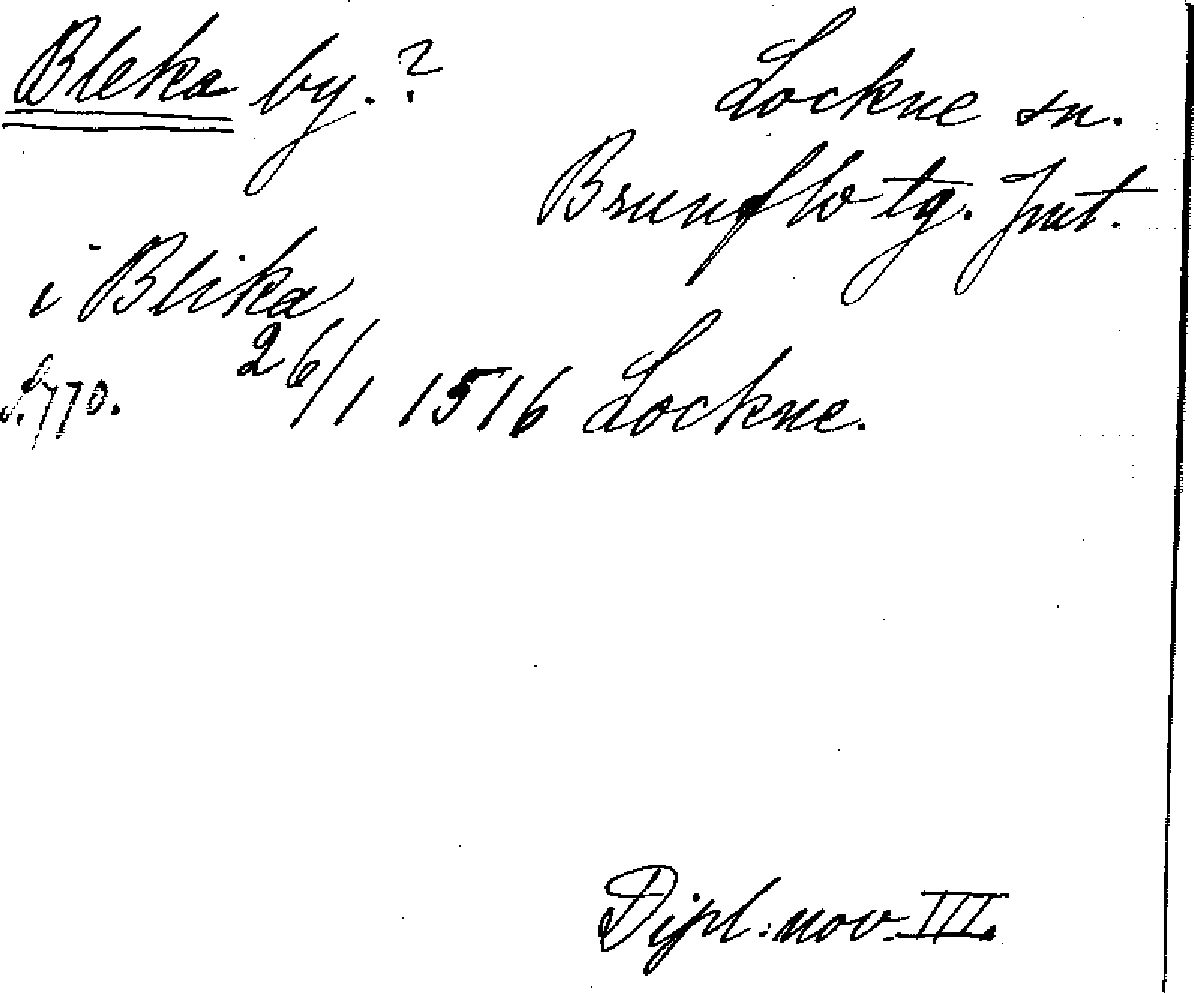 Bleka by.?
Lockne sn.
Brunflo tg. Jmt.
i Blika
s. 770. 26/1 1516 Lockne.
Dipl. nov. III.